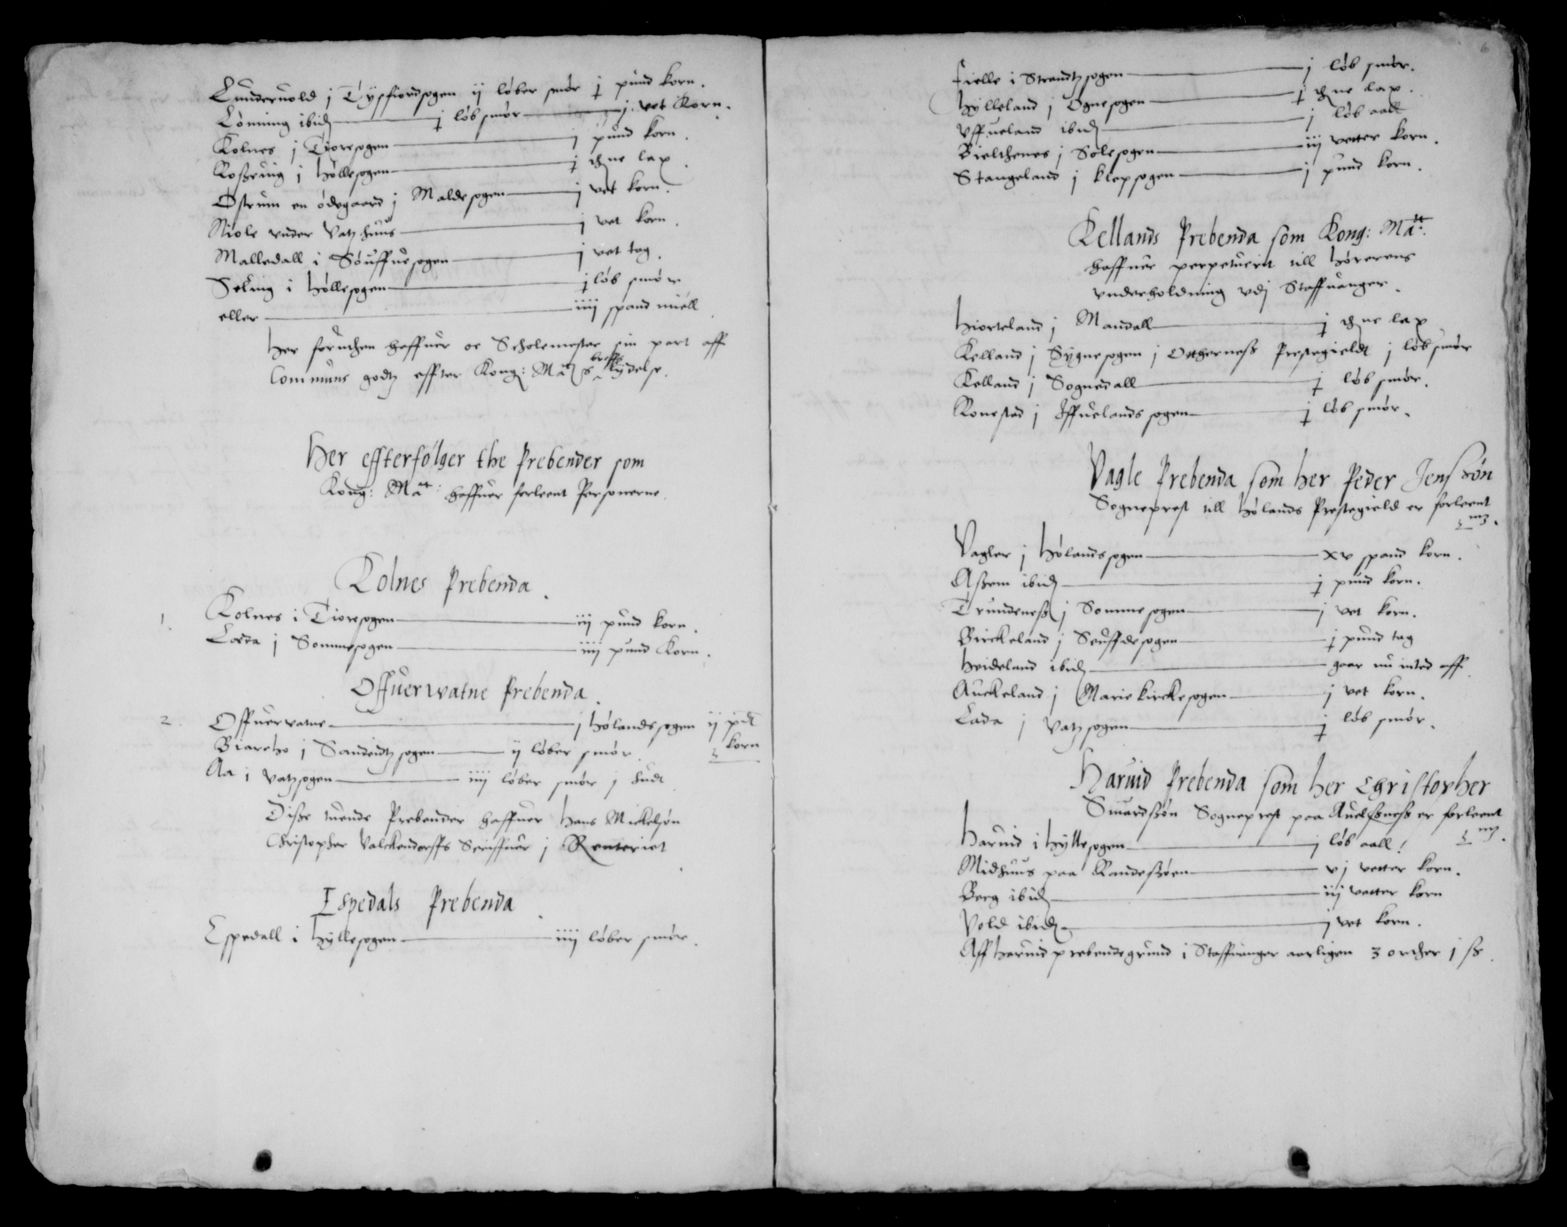 Lunderuold j Tysfiordsogen ij løber smør j pund korn.
Lønning ibid j løb smør j vet korn.
Kolnes j Tioresogen j pund korn.
Roßuig j Høllesogen j tne lax.
Østrim en ødegaard j Maldesogen j vet korn.
Niole vnder Vatzhuus j vet korn.
Malledall i Souffuesogen j vet teg.
Seluig i Høllesogen j løb smør
eller iiij spand miell.
Her foruthen haffuer oc Scholemester sin part aff
Communs godtz effter Kong: Matz breffs lydelse.
Her effterfølger the Prebender som
Kong: Matt: haffuer forleent Personerne.
Kolnes Prebenda.
1. Kolnes i Tioresogen iij pund korn.
Lorda j Sommesogen iiij pund korn.
Offuerwatne Prebenda.
2. Offuerwatne j Hølandssogen ij pd
korn
Biareho j Sandeidtzsogen ij løber smør.
Aa i Vatzsogen iiij løber smør j hudt
Disse tuende Prebender haffuer Hans Mickelsøn
Christopher Valckendorffs Schriffuer j Renteriet
Espedals Prebenda.
Espedall i Hyllesogen iiij løber smør.
6
Fielle i Strandtzsogen j løb smør.
Hylleland j Ognesogen j tne lax.
Vffueland ibid j løb aall
Bielchenes j Solesogen iij vetter korn.
Stangeland j Klepsogen j pund korn.
Kellands Prebenda som Kong: Matt:
haffuer perpetuerit till Hørerens
vnderholdning vdj Staffuanger.
Hiorteland j Mandall j tne lax
Kelland j Sygnesogen j Ottherneß Prestegieldt j løb smør
Kelland j Sognedall j løb smør.
Ronestad j Iffuelandssogen j løb smør.
Vagle Prebenda som her Peder Jensøn
Sogneprest till Hølands Prestegield er forleent
mz.
Vagler j Hølandssogen xv spand korn.
Assem ibid j pund korn.
Trundeneß j Sommesogen j vet korn.
Birckeland j Souffdesogen j pund teg
Heideland ibid gaar nu inted aff.
Auckeland j Mariekirckesogen j vet korn.
Lada j Vatzsogen j løb smør.
Haruid Prebenda som her Christopher
Siuardssøn Sogneprest paa Auelsneß er forleent
mz.
Haruid i Hyllesogen j løb aall.
Midhuus paa Randesøen vj vetter korn.
Berg ibid iij vetter korn
Vold ibid j vet korn.
Aff Haruid prebendegrund i Staffuanger aarligen 3 orther j sk.